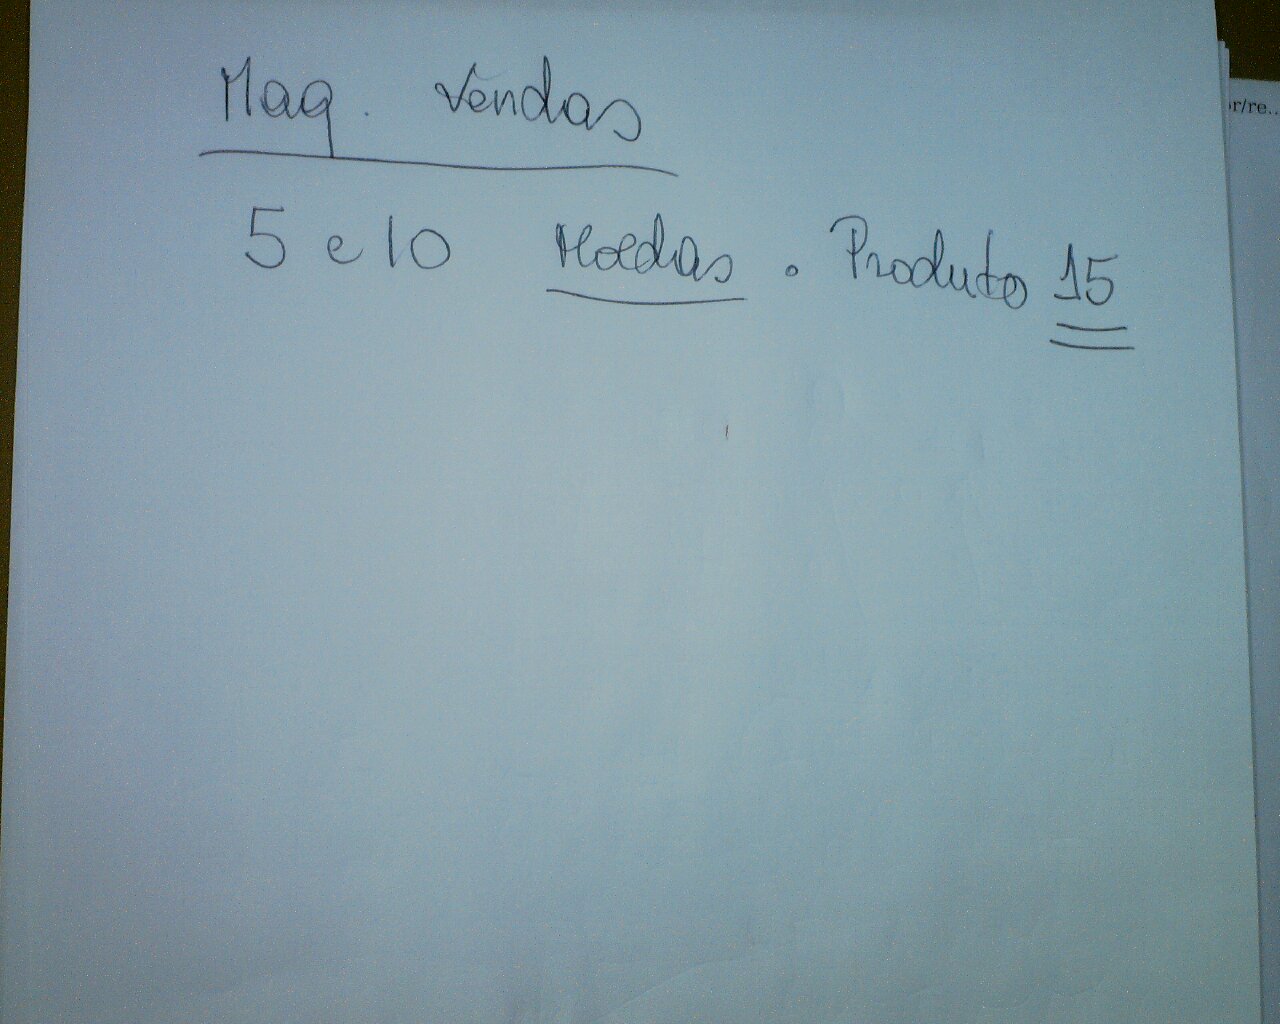 Maq. Vendas
5 e 10 Moedas. Produto 15
or/re...